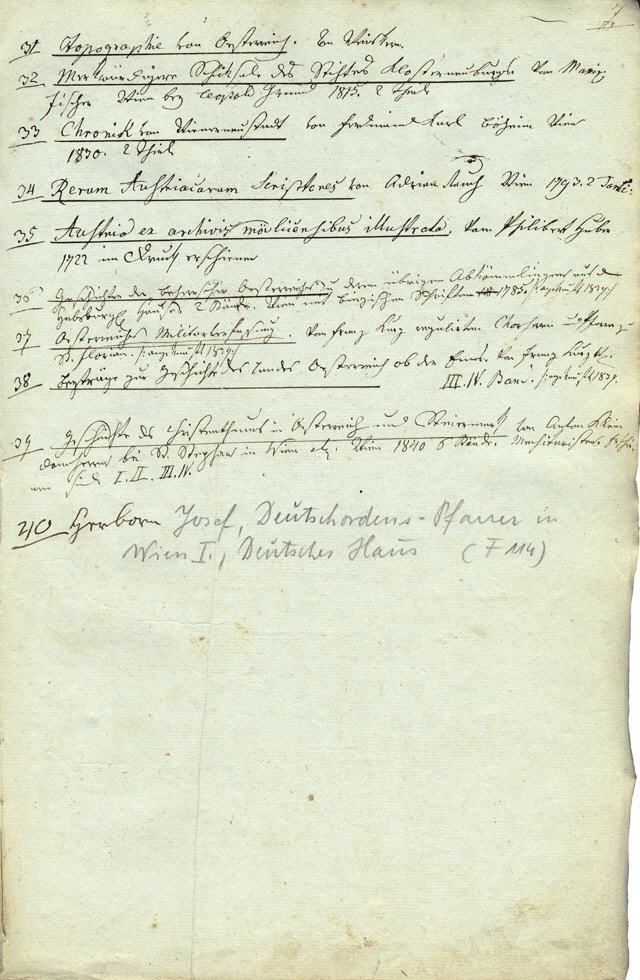 31 Topographie von Oesterreich.
32 Merkwürdigere Schiksale des Stiftes Klosterneuburg. Von Maxi:
fischer Wien bey Leopold Grund 1815. 2 Theile
33 Chronik von Wienerneustadt von Ferdinand Karl Böheim Wien
1830. 2 Theile
34 Rerum Austriacarum Scriptores von Adrian Rauch Wien 1793. 2
35 Austria ex archivis mellicensibus illustrata. Vom Philibert Hueber
1722 im Druck erschienen
36 Geschichte der Oesterreichs deren übrigen Abkömmlingen aus dem
Habsburg: Hause 2 Bände. Wien mit Schriften 1785.
37 Oesterreichs Militärverfassung. Von Franz Kurz regulirten Chorherrn und Pfarrer zu
St. Florian.
38 Beyträge zur Geschichte des Landes Oesterreich ob der Enns. Von Franz Kurz
III. IV. Band.
39 Geschichte des Christenthums in Oesterreich und Steiermark von Anton Klein
Domherrn bei St. Stephan in Wien etz. Wien 1840 6 Bände. Mechitaristen.
sind I. II. III. IV.
40 Herborn Josef, Deutschordens-Pfarrer in
Wien I., Deutsches Haus (F 114)